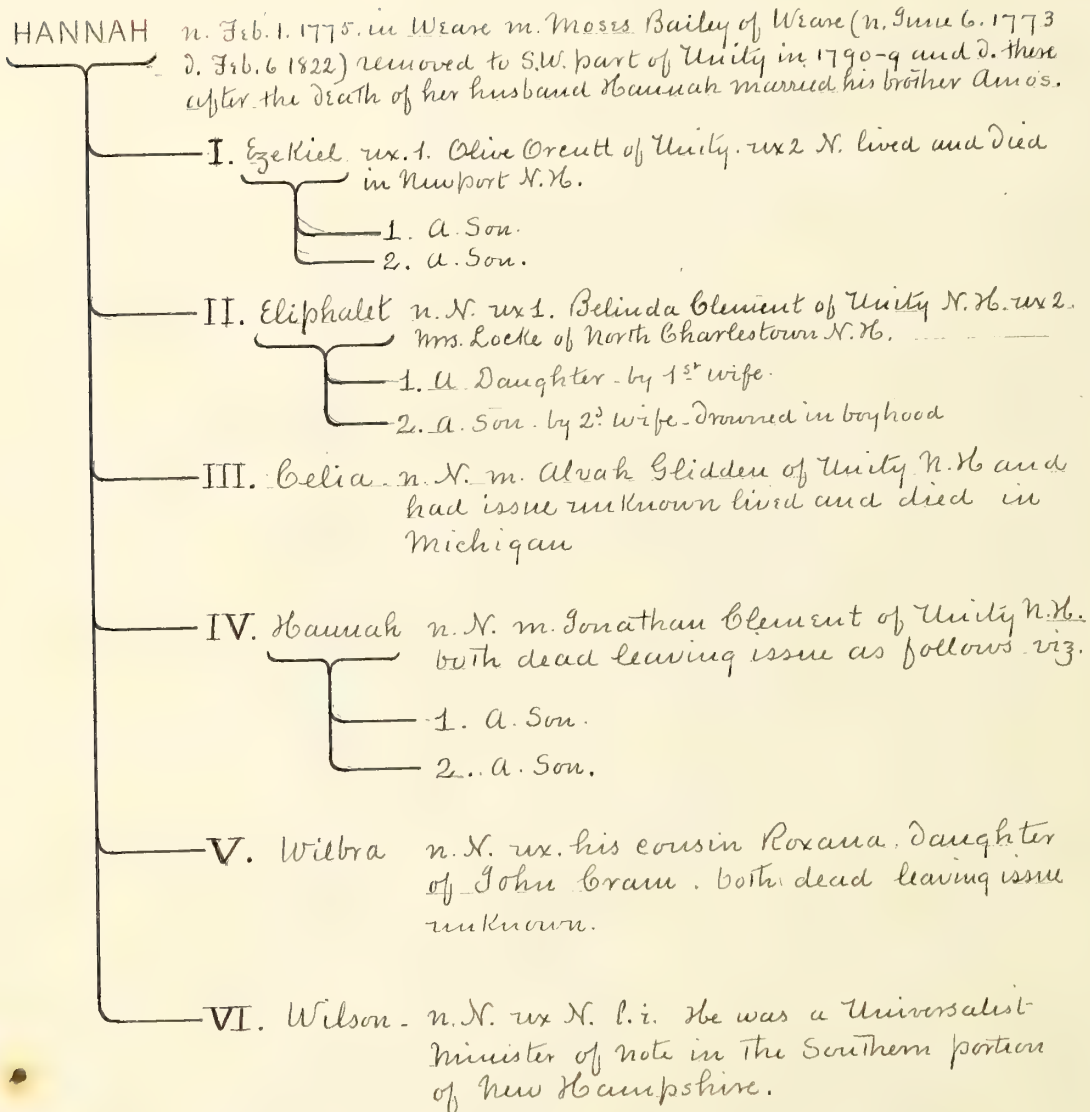 HANNAH n. Feb. 1. 1775. in Weare m. Moses Bailey of Weare (n. June 6. 1773
d. Feb. 6 1822) removed to S.W. part of Unity in 1790-9 and d. there
after the death of her husband Hannah married his brother Amos.
I. Ezekiel ux. 1. Olive Orcutt of Unity. ux 2 N. lived and died
in Newport N.H.
1. A. Son.
2. A. Son.
II. Eliphalet n. N. ux 1. Belinda Clement of Unity N.H. ux 2.
Mrs. Locke of North Charlestown N.H.
1. A Daughter - by 1st wife.
2. A. Son. by 2d wife - drowned in boyhood
III. Celia - n. N. m. Alvah Glidden of Unity N.H and
had issue unknown lived and died in
Michigan
IV. Hannah n. N. m. Jonathan Clement of Unity N.H.
both dead leaving issue as follows viz.
1. A. Son.
2. A. Son.
V. Wilbra n. N. ux. his cousin Roxana, daughter
of John Cram. both dead leaving issue
unknown.
VI. Wilson - n. N. ux N. l. i. He was a Universalist
Minister of note in the Southern portion
of New Hampshire.